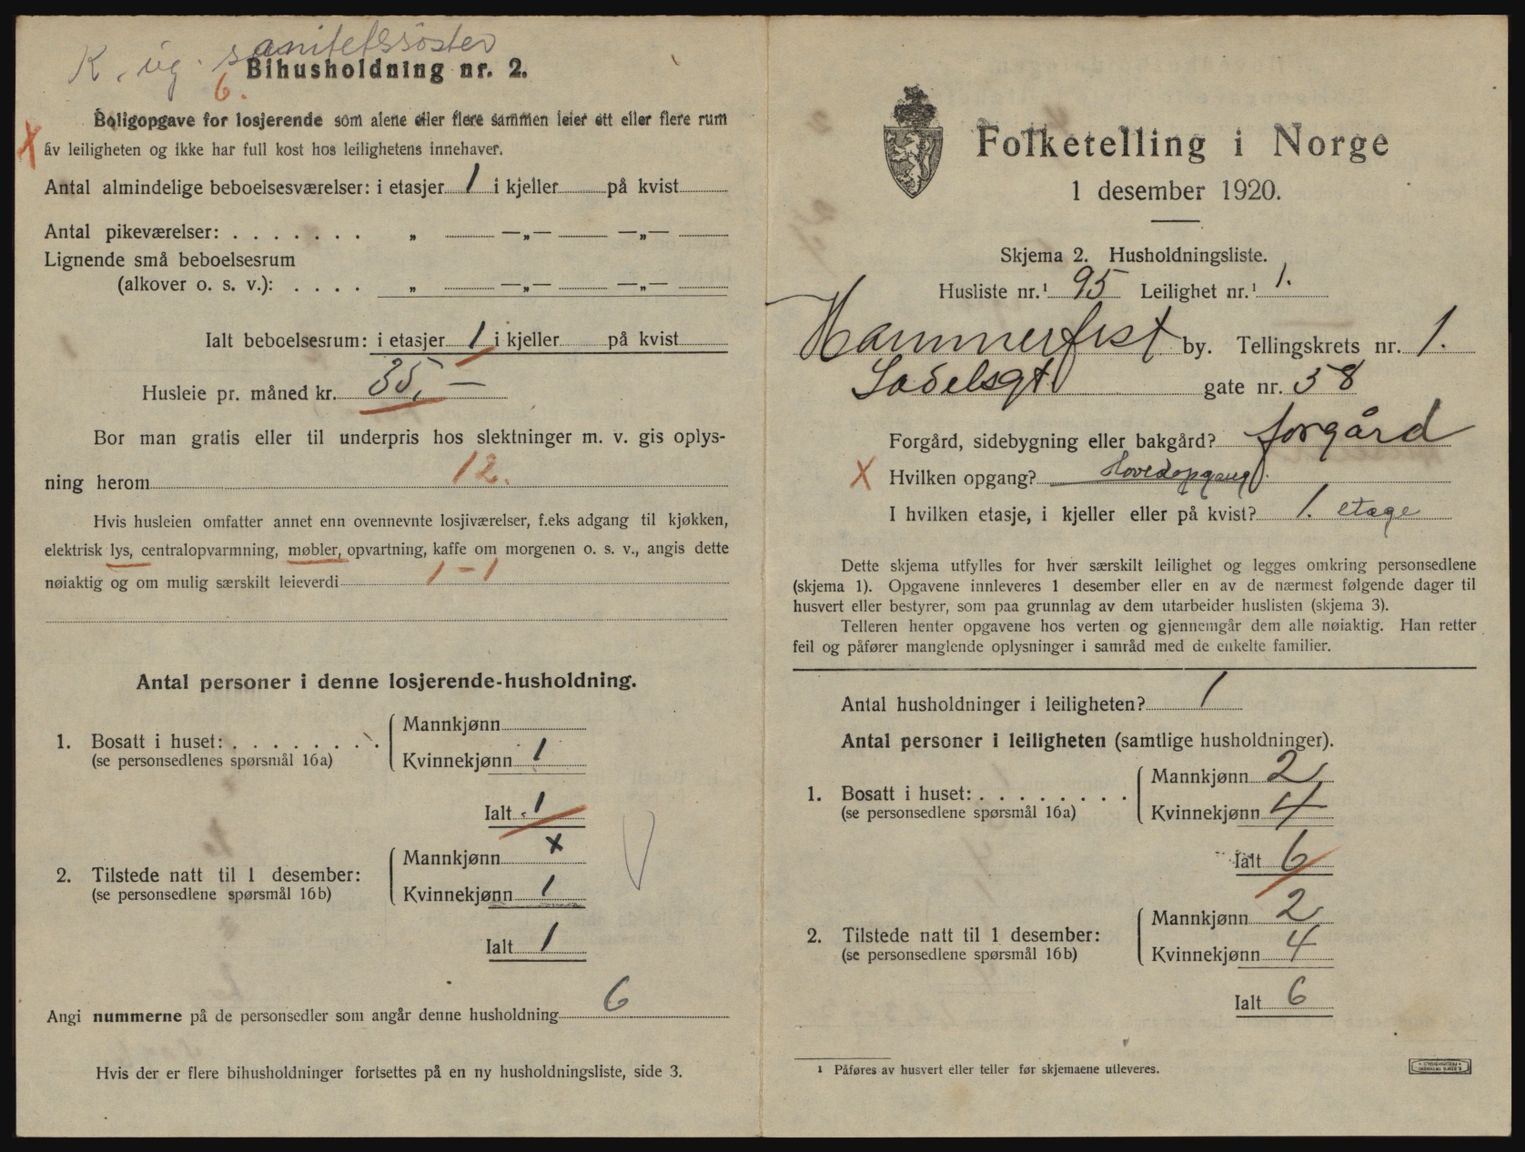 K. ug. sanitetssöster
Bihusholdning nr. 2.
6.
X
Boligopgave for losjerende som alene eller flere sammen leier ett eller flere rum
av leiligheten og ikke har full kost hos leilighetens innehaver.
Antal almindelige beboelsesværelser: i etasjer 1 i kjeller på kvist
Antal pikeværelser: . . . . . . . „ —„— —„—
Lignende små beboelsesrum
(alkover o. s. v.): . . . . „ —„— —„—
Ialt beboelsesrum: i etasjer 1 i kjeller på kvist
Husleie pr. måned kr. 35,—
Bor man gratis eller til underpris hos slektninger m. v. gis oplys-
ning herom 12.
Hvis husleien omfatter annet enn ovennevnte losjiværelser, f.eks adgang til kjøkken,
elektrisk lys, centralopvarmning, møbler, opvartning, kaffe om morgenen o. s. v., angis dette
nøiaktig og om mulig særskilt leieverdi 1 - 1
Antal personer i denne losjerende-husholdning.
1. Bosatt i huset: . . . . . . . . Mannkjønn
(se personsedlenes spørsmål 16a) Kvinnekjønn 1
Ialt 1
x
2. Tilstede natt til 1 desember: Mannkjønn
(se personsedlene spørsmål 16b) Kvinnekjønn 1
Ialt 1
Angi nummerne på de personsedler som angår denne husholdning 6
Hvis der er flere bihusholdninger fortsettes på en ny husholdningsliste, side 3.
Folketelling i Norge
1 desember 1920.
Skjema 2. Husholdningsliste.
Husliste nr.¹ 95 Leilighet nr.¹ 1.
Hammerfest by. Tellingskrets nr. 1.
Sadelsgt. gate nr. 38
Forgård, sidebygning eller bakgård? forgård
X Hvilken opgang? Hovedopgang
I hvilken etasje, i kjeller eller på kvist? 1. etage
Dette skjema utfylles for hver særskilt leilighet og legges omkring personsedlene
(skjema 1). Opgavene innleveres 1 desember eller en av de nærmest følgende dager til
husvert eller bestyrer, som paa grunnlag av dem utarbeider huslisten (skjema 3).
Telleren henter opgavene hos verten og gjennemgår dem alle nøiaktig. Han retter
feil og påfører manglende oplysninger i samråd med de enkelte familier.
Antal husholdninger i leiligheten? 1
Antal personer i leiligheten (samtlige husholdninger).
1. Bosatt i huset: . . . . . . . . Mannkjønn 2
(se personsedlene spørsmål 16a) Kvinnekjønn 4
Ialt 6
2. Tilstede natt til 1 desember: Mannkjønn 2
(se personsedlene spørsmål 16b) Kvinnekjønn 4
Ialt 6
¹ Påføres av husvert eller teller før skjemaene utleveres.